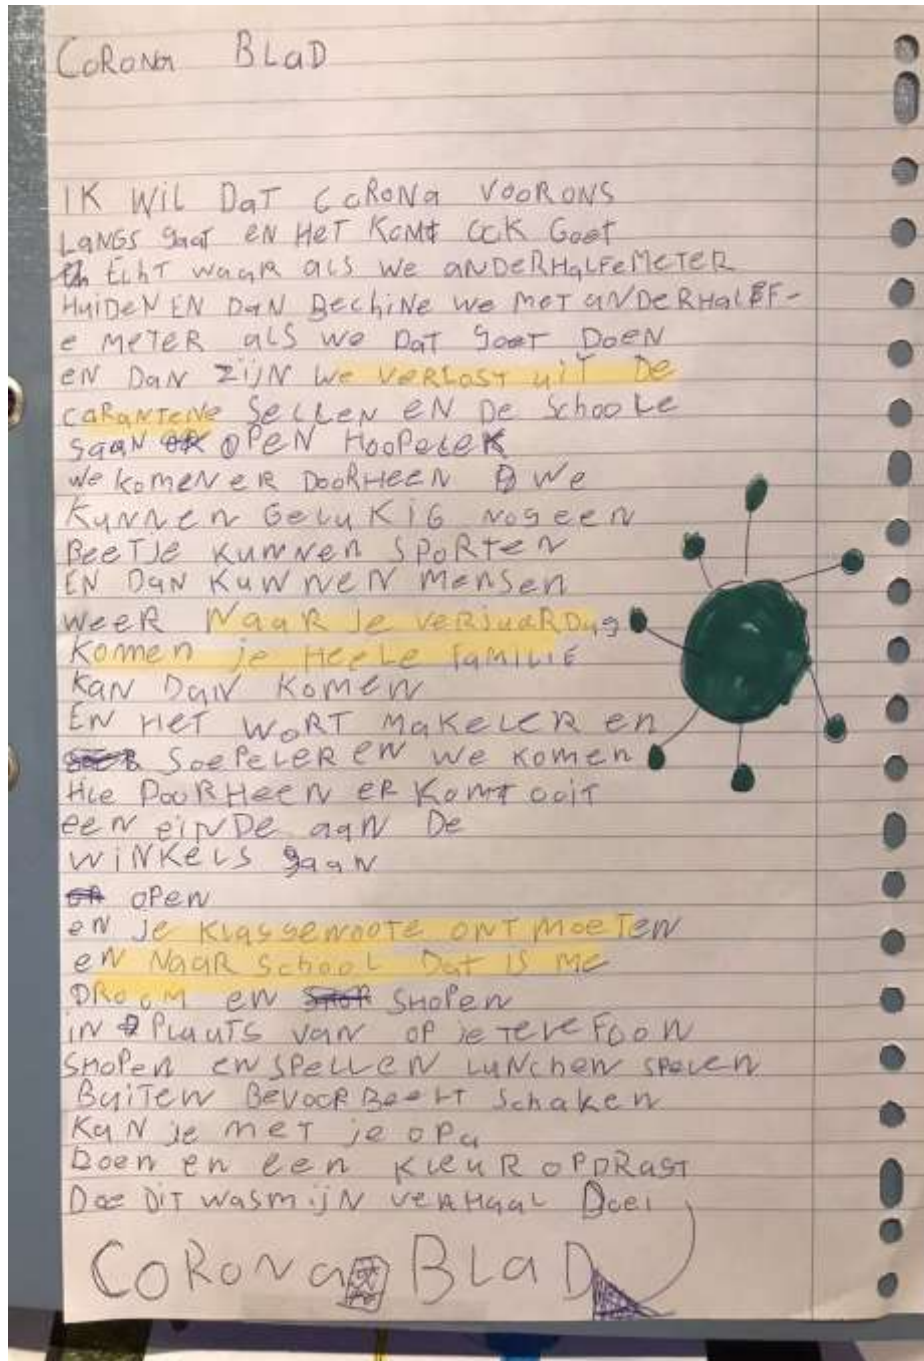 CORONA BLAD
IK WIL DAT CORONA VOORONS
LANGS gaat EN HET KOMt OOK Goet
EchT waar als we aNDERHaLFeMETER
HuiDEN EN DaN BechiNe we MeT aNDERHaLFF-
e MeTER als we DaT goet DoEN
eN DaN ZIJN we VERLOST uiT De
CaRaNTeNe SeLLEN eN De SchooLe
gaaN OPEN HOOPeLeK
we komeN eR DOORHeeN we
KuNNeN GeLuKiG Nogeen
BeeTJe KuNNeN SPoRTeN
EN DaN KuNNeN MeNSeN
weeR NaaR Je VeRJaaRDag
KomeN je HeeLe FaMiLiE
KaN DaN KOMeN
EN HeT WoRT MaKeLeR eN
SoePeLeR eN We KoMeN
HIE DooRHeeN eR KoMt ooiT
eeN eiNDe aaN De
WiNKeLS gaaN
OPeN
eN Je KLasgeNooTe oNTMoeTeN
eN NaaR SchooL DaT IS Me
DRooM eN SHoPeN
iN PLaaTS VaN oP je TeLeFooN
SHoPeN eN SPeLLeN LuNcheN SPeLeN
BuiTeN BeVoorBeeLT SchaKeN
KaN je MeT je oPa
DoeN eN eeN KLeuR oPDRagT
Doe DiT wasmiJN VeRHaaL Doei
CoRoNa BLaD